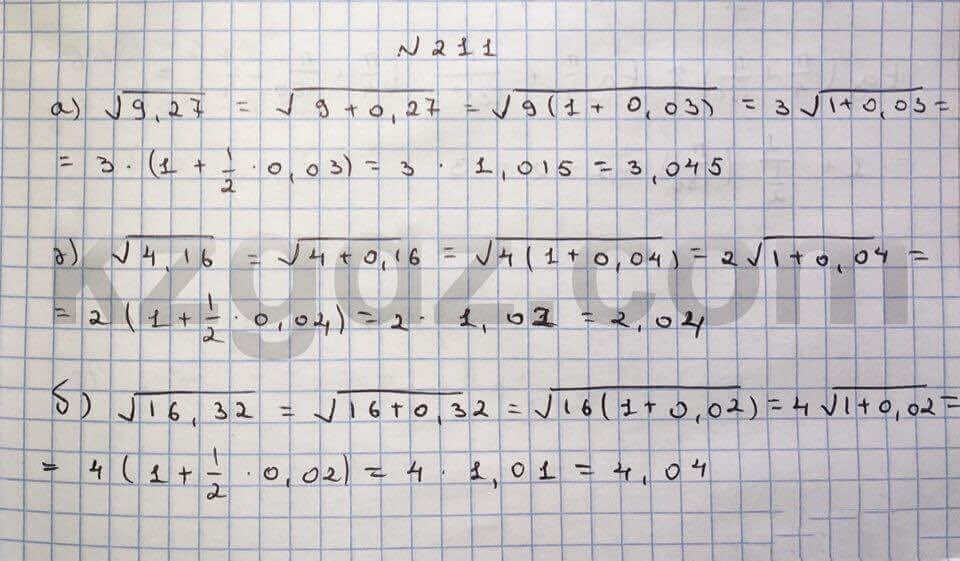 N 211
а) √9,27 = √9+0,27 = √9(1+0,03) = 3√1+0,03 =
= 3·(1+1/2·0,03) = 3·1,015 = 3,045
г) √4,16 = √4+0,16 = √4(1+0,04) = 2√1+0,04 =
= 2(1+1/2·0,04) = 2·1,02 = 2,04
б) √16,32 = √16+0,32 = √16(1+0,02) = 4√1+0,02 =
= 4(1+1/2·0,02) = 4·1,01 = 4,04
kzgdz.com